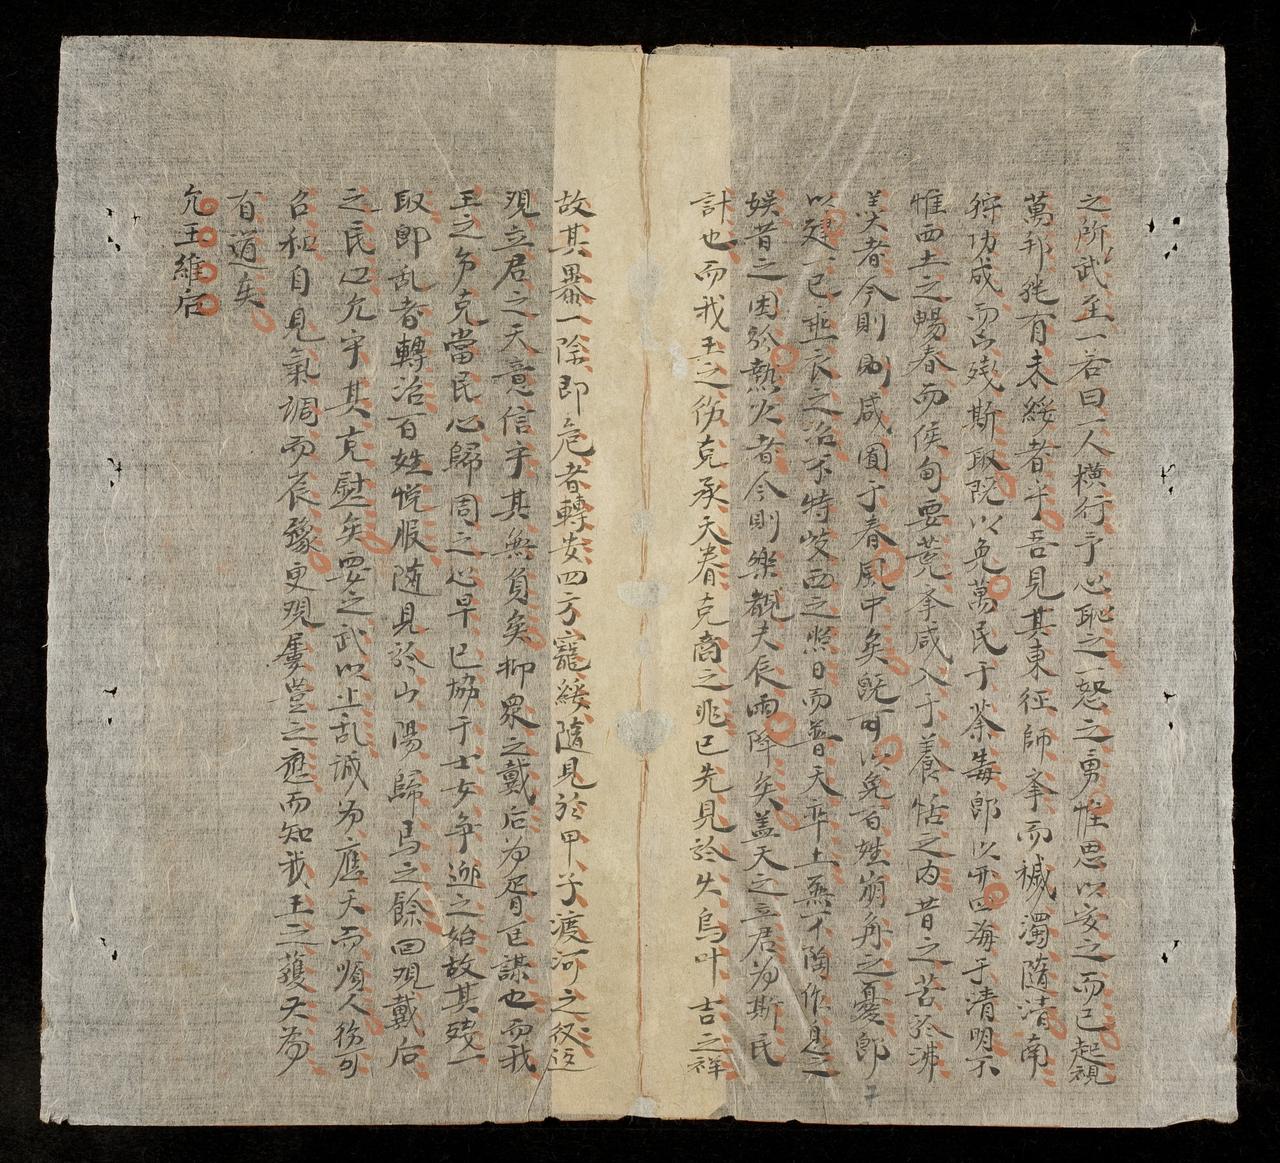 之所武王一若曰一人橫行予心恥之一怒之勇惟思以安之而已起視
萬邦能有未綏者乎吾見其東征師举而穢濁隨清南
狩功成而凶殘斯取既以免萬民于荼毒即以宁四海于清明不
惟西土之暢春而侯甸要荒举咸入于養恬之内昔之苦於沸
羹者今則咸囿于春風中矣既可以免百姓崩角之憂即
以建一己垂衣之治不特岐西之照日而普天率土無不陶作息之
娛昔之困於熱火者今則樂覩夫辰雨降矣盖天之立君为斯民
計也而我王之伤克承天眷克商之兆已先見於火烏叶吉之祥
故其暴一除即危者轉安四方寵綏隨見於甲子渡河之役
观立君之天意信乎其無負矣抑眾之戴后为胥匡謀也而我
王之伤克當民心歸周之心早已協于士女争迎之始故其殘一
取即乱者轉治百姓悦服隨見於山陽歸馬之餘回观戴后
之民心允乎其克慰矣要之武以止乱誠为應天而順人伤可
召和自見氣調而辰豫更观屢豊之應而知我王之獲天为
有道矣
允王維后